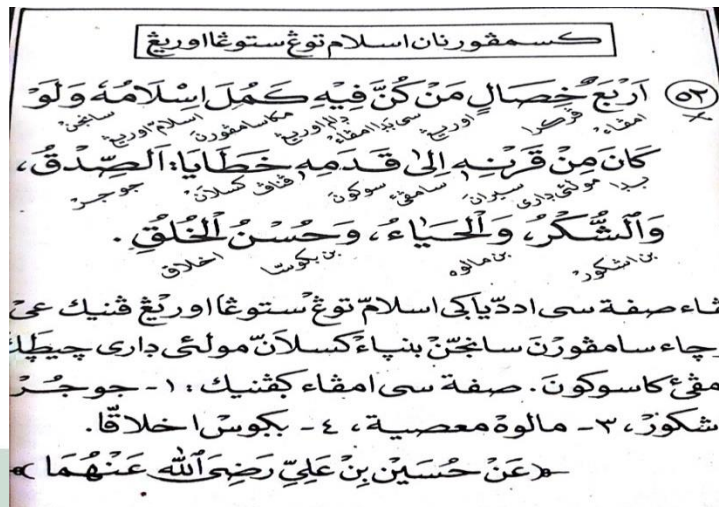 كسمڤورنان اسلام توڠ ستوڠا اوريڠ
٥٢ اَرْبَعُ خِصَالٍ مَنْ كُنَّ فِيْهِ كَمُلَ اِسْلَامُهُ وَلَوْ
امڤاء ڤركرا اوريڠ سي بدا امڤاء دلم اوريڠ مكا سامڤورن اسلامّ اوريڠ سانجن
كَانَ مِنْ قَرْنِهِ اِلىٰ قَدَمِهِ خَطَايَا: اَلصِّدْقُ،
بدا مولئي داري سيران سامڤي سوكون ڤناڤ كسلان جوجر
وَالشُّكْرُ، وَالْحَيَاءُ، وَحُسْنُ الْخُلُقِ.
بن اشكور بن مالوه بن بكوسا اخلاق
ڤاء صفة سي اددّياڬي اسلامّ توڠ ستوڠا اوريڠ ڤنيك عيـ
چاء سامڤورن سانجّن بنياء كسلانّ مولئي داري چيطڀك
مڤئ كا سوكون. صفة سي امڤاء كڤنيك: ١- جوجر
شكور، ٣- مالوه معصية، ٤- بكوس اخلاقا.
﴿عَنْ حُسَيْن بِنْ عَلِيّ رَضِيَ اللّٰه عَنْهُمَا﴾